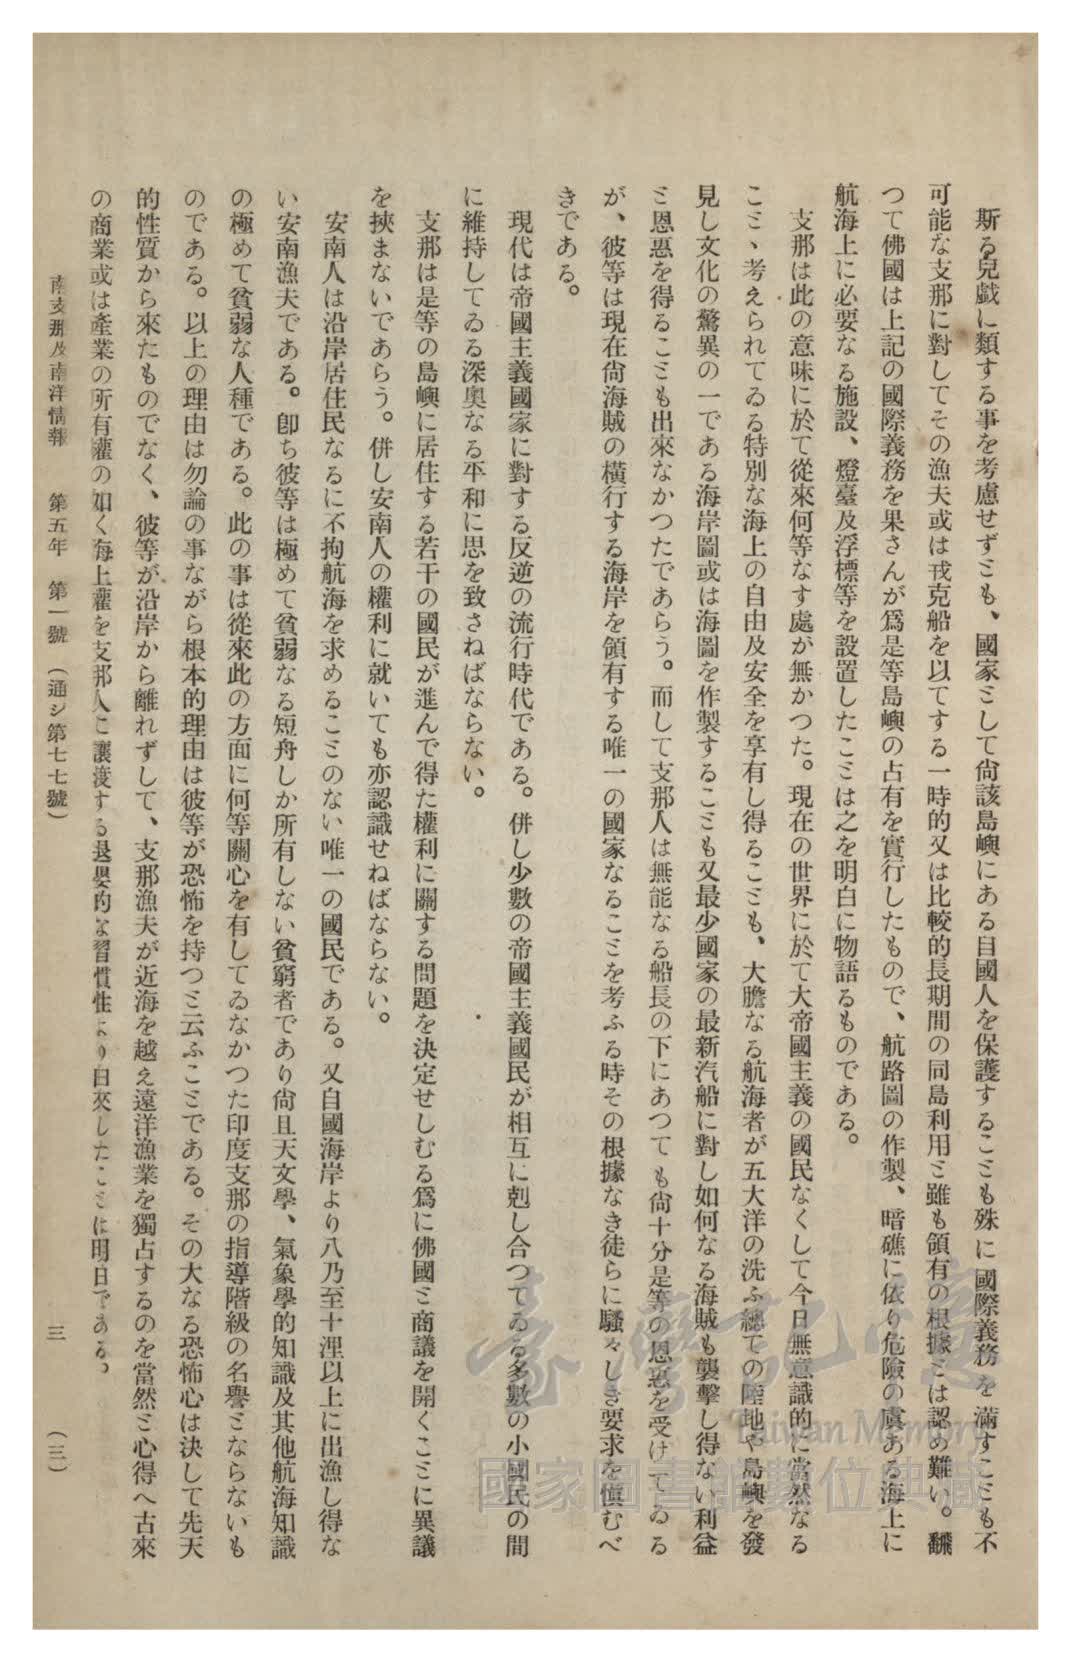 斯る兒戯に類する事を考慮せずミも、國家ミして尙該島嶼にある自國人を保護するこミも殊に國際義務を滿すこミも不
可能な支那に對してその漁夫或は戎克船を以てする一時的又は比較的長期間の同島利用ミ雖も領有の根據ミは認め難い。飜
つて佛國は上記の國際義務を果さんが爲是等島嶼の占有を實行したもので、航路圖の作製、暗礁に依り危險の虞ある海上に
航海上に必要なる施設、燈臺及浮標等を設置したこミは之を明白に物語るものである。
支那は此の意味に於て從來何等なす處が無かつた。現在の世界に於て大帝國主義の國民なくして今日無意識的に當然なる
こミヽ考えられてゐる特別な海上の自由及安全を享有し得るこミも、大膽なる航海者が五大洋の洗ふ總ての陸地や島嶼を發
見し文化の驚異の一である海岸圖或は海圖を作製するこミも又最少國家の最新汽船に對し如何なる海賊も襲擊し得ない利益
ミ恩惠を得るこミも出來なかつたであらう。而して支那人は無能なる船長の下にあつても尙十分是等の恩惠を受けてゐる
が、彼等は現在尙海賊の橫行する海岸を領有する唯一の國家なるこミを考ふる時その根據なき徒らに騷々しき要求を愼むべ
きである。
現代は帝國主義國家に對する反逆の流行時代である。併し少數の帝國主義國民が相互に剋し合つてゐる多數の小國民の間
に維持してゐる深奧なる平和に思を致さねばならない。
支那は是等の島嶼に居住する若干の國民が進んで得た權利に關する問題を決定せしむる爲に佛國ミ商議を開くこミに異議
を挾まないであらう。併し安南人の權利に就いても亦認識せねばならない。
安南人は沿岸居住民なるに不拘航海を求めるこミのない唯一の國民である。又自國海岸より八乃至十浬以上に出漁し得な
い安南漁夫である。卽ち彼等は極めて貧弱なる短舟しか所有しない貧窮者であり尙且天文學、氣象學的知識及其他航海知識
の極めて貧弱な人種である。此の事は從來此の方面に何等關心を有してゐなかつた印度支那の指導階級の名譽ミならないも
のである。以上の理由は勿論の事ながら根本的理由は彼等が恐怖を持つミ云ふこミである。その大なる恐怖心は決して先天
的性質から來たものでなく、彼等が沿岸から離れずして、支那漁夫が近海を越え遠洋漁業を獨占するのを當然ミ心得へ古來
の商業或は產業の所有權の如く海上權を支那人に讓渡する退嬰的な習慣性より由來したこミは明白である。
南支那及南洋情報　第五年　第一號　(通シ第七七號)　三　(三)
臺灣記憶
Taiwan Memory
國家圖書館數位典藏